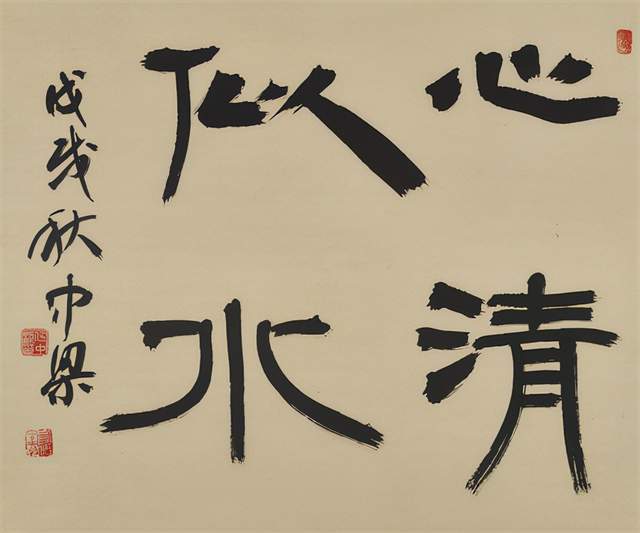 心清
似水
戊戌秋中梁